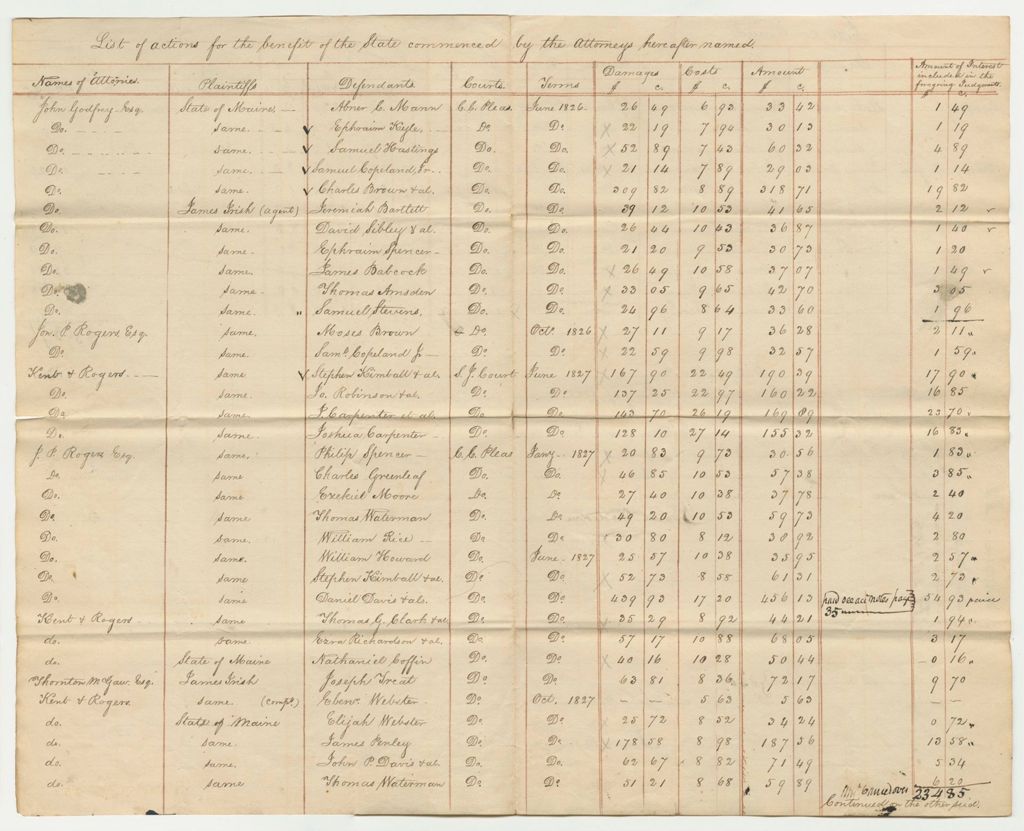 List of actions for the benefit of the State commenced by the Attorneys hereafter named.
Names of Attornies. Plaintiffs Defendants Courts. Terms Damages $ c. Costs $ c. Amount $ c. Amount of Interest included in the foregoing Judgmts. $ c.
John Godfrey Esq. State of Maine Abner C. Mann C.C. Pleas June 1826. 26 49 6 93 33 42 1 49
Do. same. Ephraim Kyle. Do. Do. x 22 19 7 94 30 13 1 19
Do. same. Samuel Hastings Do. Do. x 52 89 7 43 60 32 4 89
Do. same. Samuel Copeland, Jr. Do. Do. x 21 14 7 89 29 03 1 14
Do. same. Charles Brown & al. Do. Do. 309 82 8 89 318 71 19 82
Do. James Irish (agent) Jeremiah Bartlett Do. Do. 39 12 10 53 41 65 2 12
Do. same. David Sibley & al. Do. Do. 26 44 10 43 36 87 1 40
Do. same. Ephraim Spencer Do. Do. 21 20 9 53 30 73 1 20
Do. same. James Babcock Do. Do. x 26 49 10 58 37 07 1 49
Do. same. Thomas Amsden Do. Do. x 33 05 9 65 42 70 3 05
Do. same. " Samuel Stevens. Do. Do. 24 96 8 64 33 60 1 96
Jon. P. Rogers Esq. same. Moses Brown Do. Oct. 1826 x 27 11 9 17 36 28 2 11
Do. same. Saml. Copeland Jr Do. Do. x 22 59 9 98 32 57 1 59
Kent & Rogers. same Stephen Kimball & al. S.J. Court June 1827 x 167 90 22 49 190 39 17 90
Do. same. Jo. Robinson & al. Do. Do. 137 25 22 97 160 22 16 85
Do. same. J. Carpenter et al. Do. Do. 143 70 26 19 169 89 23 70
Do. same. Joshua Carpenter Do. Do. 128 10 27 14 155 32 16 83
J. P. Rogers Esq. same. Philip Spencer C.C. Pleas Jany. 1827 x 20 83 9 73 30 56 1 83
Do. same Charles Greenleaf Do. Do. 46 85 10 53 57 38 3 85
Do. same Ezekiel Moore Do. Do. 27 40 10 38 37 78 2 40
Do. same Thomas Waterman Do. Do. 49 20 10 53 59 73 4 20
Do. same. William Rice Do. Do. 30 80 8 12 30 92 2 80
Do. same. William Howard Do. June 1827 25 57 10 38 35 95 2 57
Do. same Stephen Kimball & al. Do. Do. x 52 73 8 58 61 31 2 73
Do. same Daniel Davis & als. Do. Do. 439 93 17 20 456 13 paid see act notes pay 35 34 93 paid
Kent & Rogers same Thomas G. Clark & al Do. Do. x 35 29 8 92 44 21 1 94
do. same. Ezra Richardson & al. Do. Do. 57 17 10 88 68 05 3 17
do. State of Maine Nathaniel Coffin Do. Do. x 40 16 10 28 50 44 0 16
Thornton McGaw. Esq. James Irish Joseph Treat Do. Do. 63 81 8 36 72 17 9 70
Kent & Rogers same. (comp.) Ebenr. Webster Do. Oct. 1827 — — 5 63 5 63
do. State of Maine Elijah Webster Do. Do. x 25 72 8 52 34 24 0 72
do. same. James Penley Do. Do. x 178 58 8 98 187 56 13 58
do. same. John P. Davis & al. Do. Do. 62 67 8 82 71 49 5 34
do. same Thomas Waterman Do. Do. 51 21 8 68 59 89 6 20
234 85
Continued on the other side.